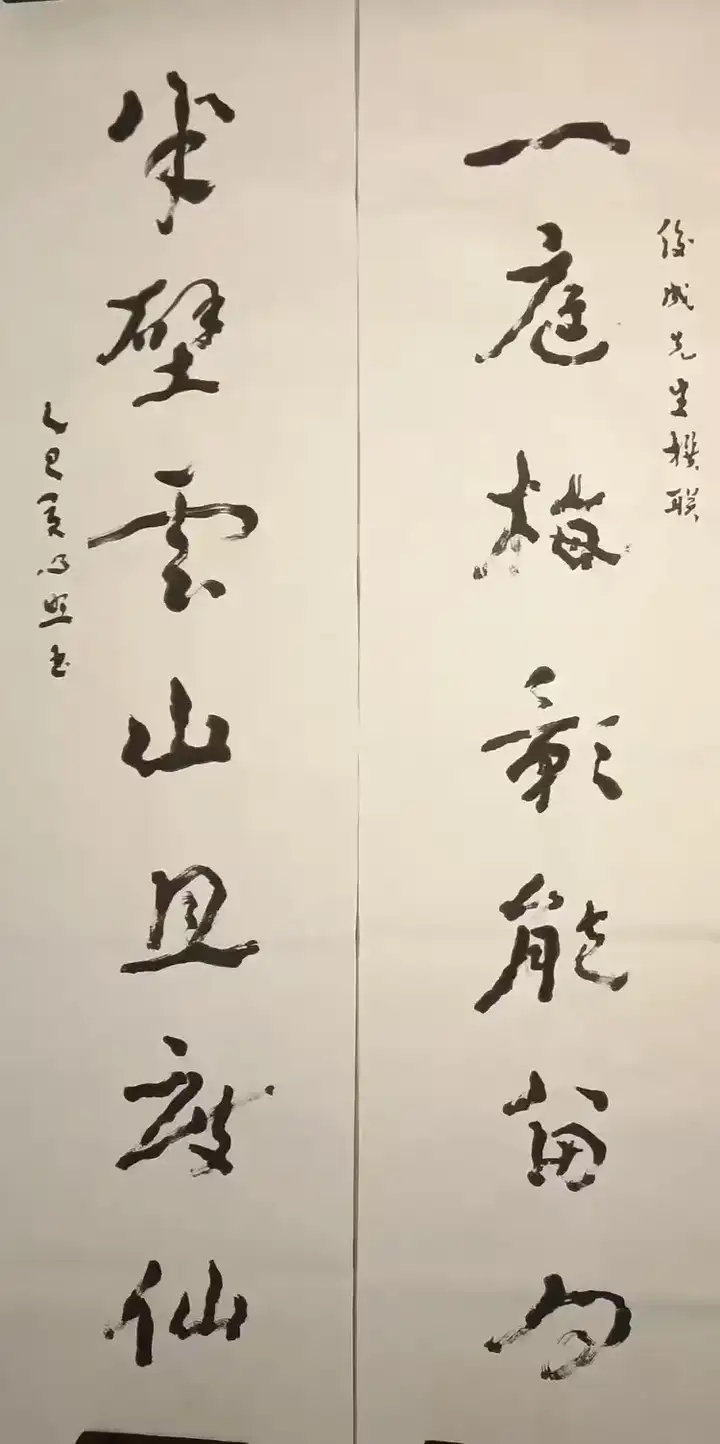 成先生撰联
一庭梅影能留句
半壁雲山且仙
乙巳夏书